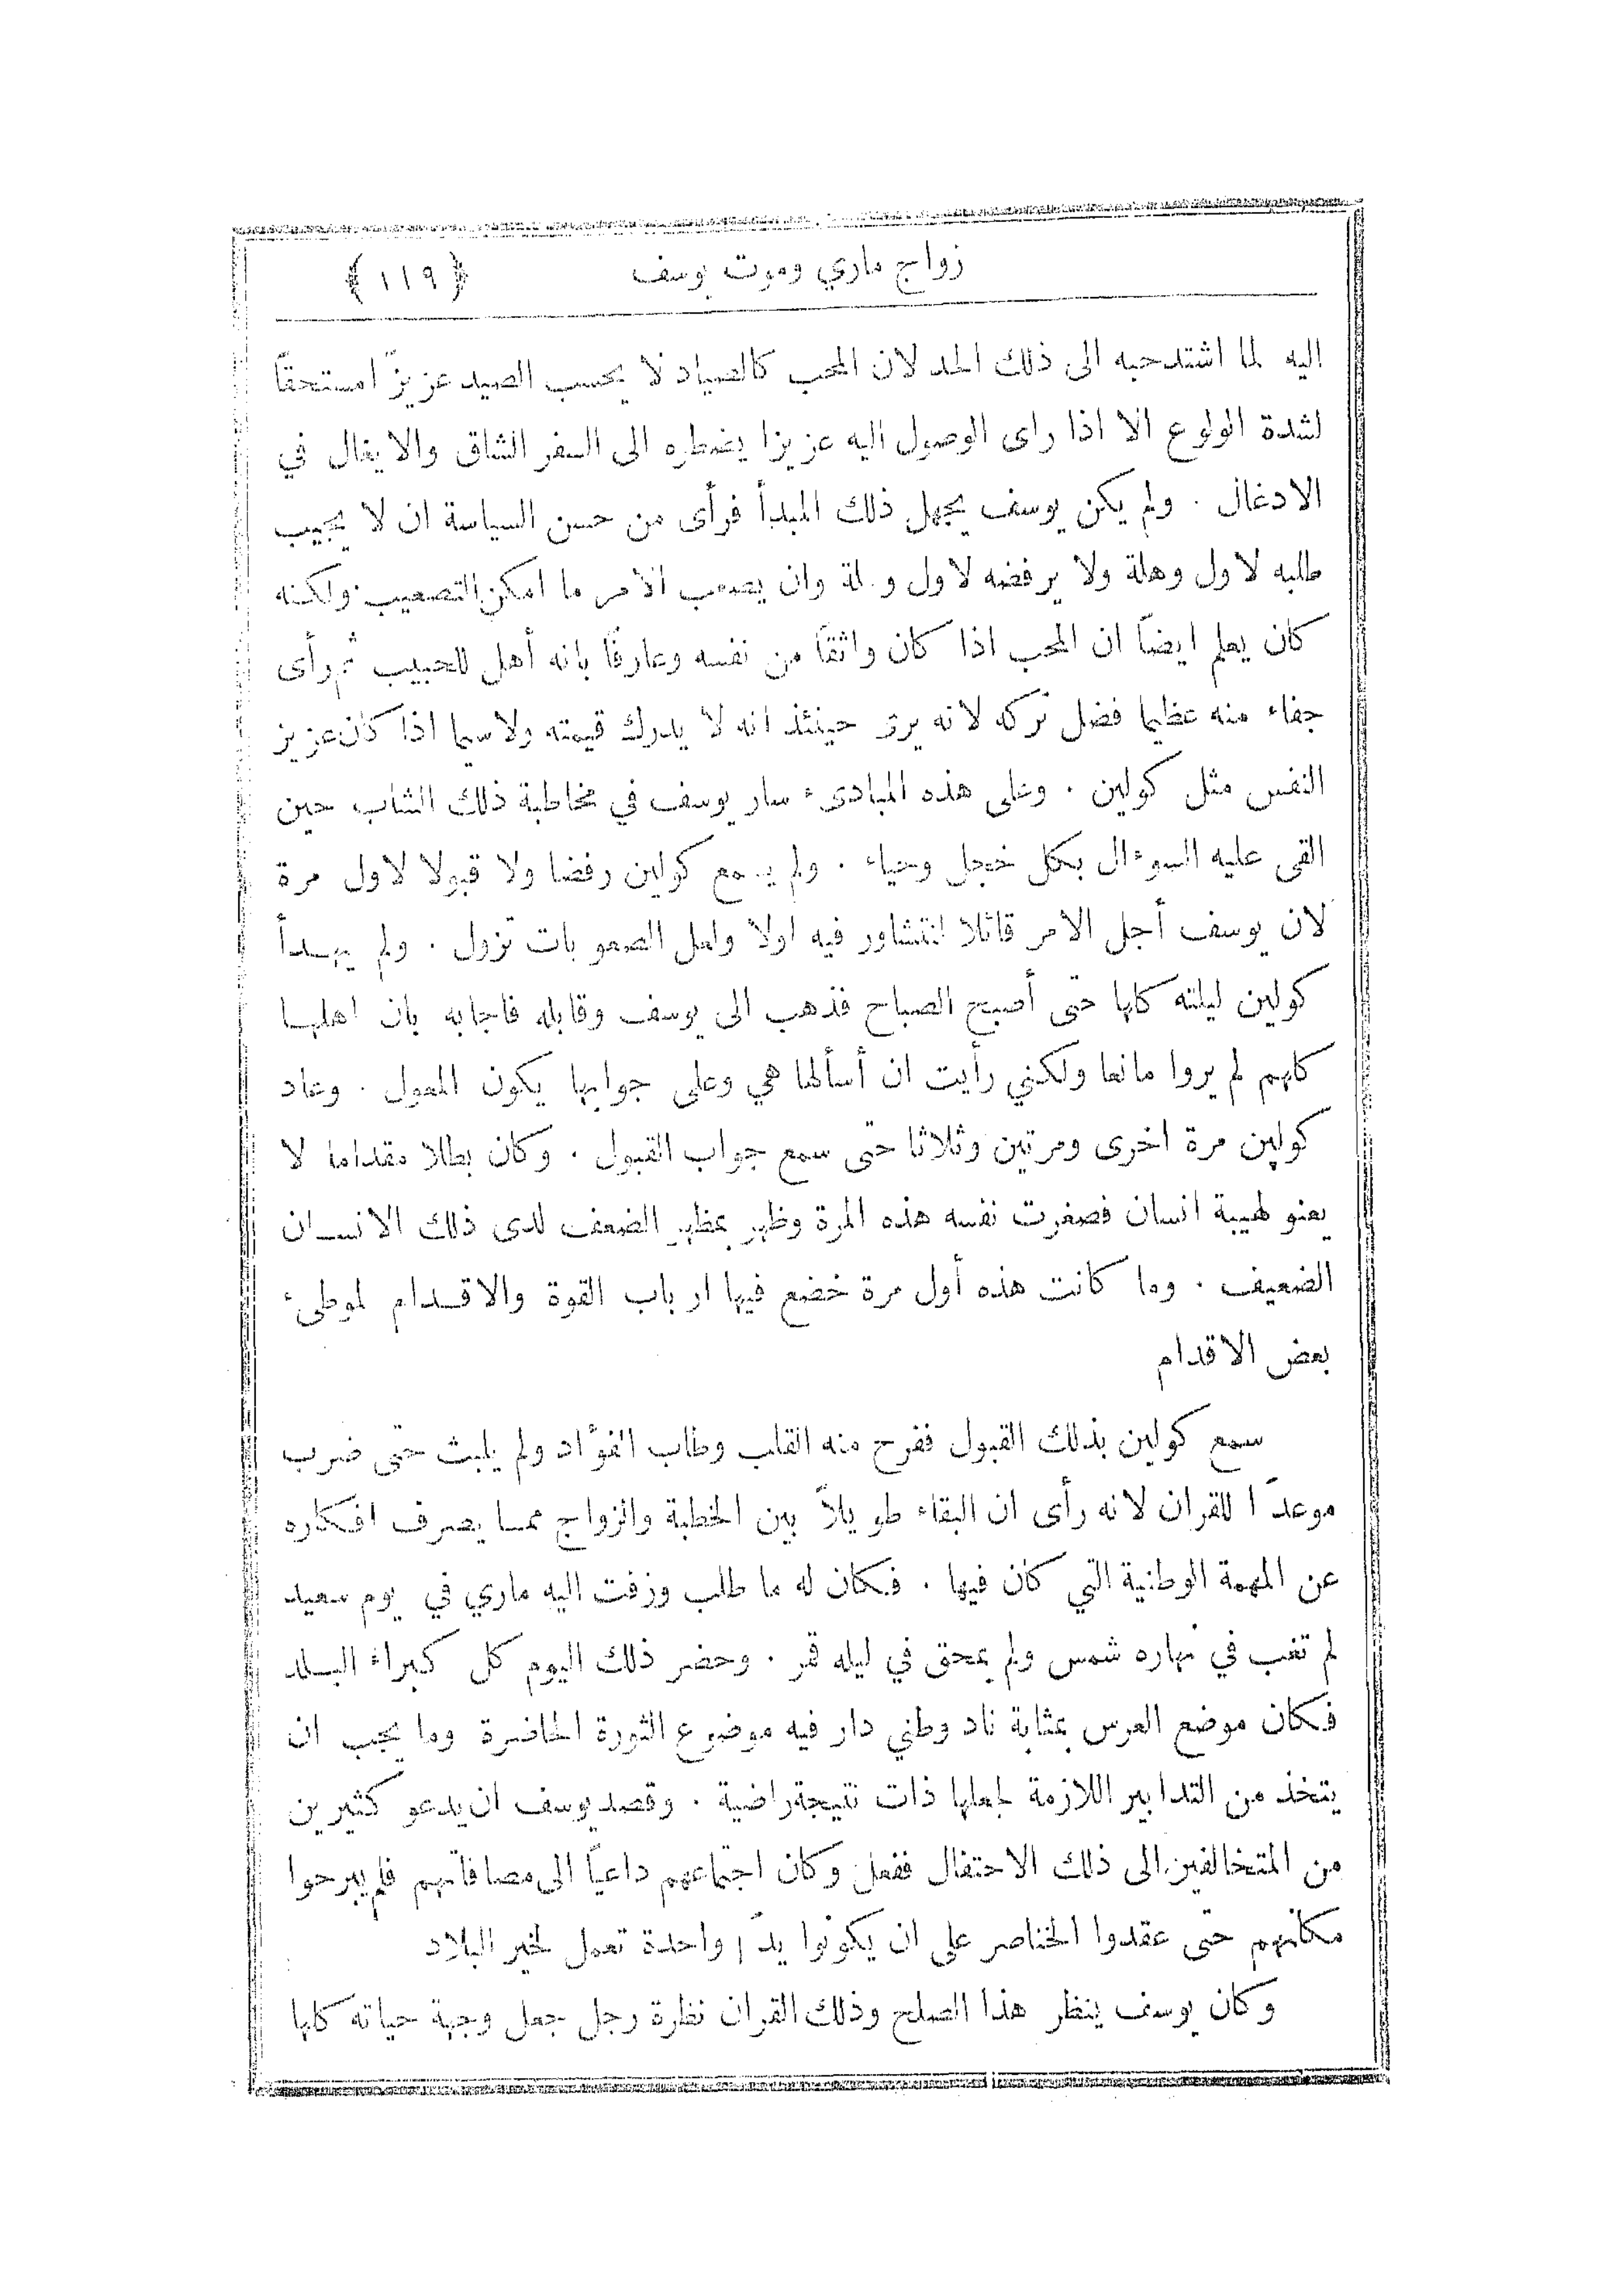 زواج ماري وموت يوسف ﴿ ١١٩ ﴾
اليه لما اشتدحبه الى ذلك الحد لان المحب كالصياد لا يحسب الصيد عزيزًا مستحقًا
لشدة الولوع الا اذا راى الوصول اليه عزيزا يضطره الى السفر الشاق والايغال في
الادغال . ولم يكن يوسف يجهل ذلك المبدأ فرأى من حسن السياسة ان لا يجيب
طلبه لاول وهلة ولا يرفضه لاول وهلة وان يصعب الامر ما امكن التصعيب ولكنه
كان يعلم ايضًا ان المحب اذا كان واثقًا من نفسه وعارفًا بانه أهل للحبيب ثم رأى
جفاء منه عظيما فضل تركه لانه يرى حينئذ انه لا يدرك قيمته ولاسيما اذا كان عزيز
النفس مثل كولين . وعلى هذه المبادىء سار يوسف في مخاطبة ذلك الشاب حين
القى عليه السوءال بكل خجل وحياء . ولم يسمع كولين رفضا ولا قبولا لاول مرة
لان يوسف أجل الامر قائلا لنتشاور فيه اولا ولعل الصعوبات تزول . ولم يهدأ
كولين ليلته كلها حتى أصبح الصباح فذهب الى يوسف وقابله فاجابه بان اهلها
كلهم لم يروا مانعا ولكني رأيت ان أسألها هي وعلى جوابها يكون المعول . وعاد
كولين مرة اخرى ومرتين وثلاثا حتى سمع جواب القبول . وكان بطلا مقداما لا
يعنو لهيبة انسان فصغرت نفسه هذه المرة وظهر بمظهر الضعف لدى ذلك الانسان
الضعيف . وما كانت هذه أول مرة خضع فيها ارباب القوة والاقدام لموطىء
بعض الاقدام
سمع كولين بذلك القبول ففرح منه القلب وطاب الفؤاد ولم يلبث حتى ضرب
موعدًا للقران لانه رأى ان البقاء طويلاً بين الخطبة والزواج مما يصرف افكاره
عن المهمة الوطنية التي كان فيها . فكان له ما طلب وزفت اليه ماري في يوم سعيد
لم تغب في نهاره شمس ولم يمحق في ليله قمر . وحضر ذلك اليوم كل كبراء البلد
فكان موضع العرس بمثابة ناد وطني دار فيه موضوع الثورة الحاضرة وما يجب ان
يتخذ من التدابير اللازمة لجعلها ذات نتيجة راضية . وقصد يوسف ان يدعو كثيرين
من المتخالفين الى ذلك الاحتفال ففعل وكان اجتماعهم داعيًا الى مصافاتهم فلم يبرحوا
مكانهم حتى عقدوا الخناصر على ان يكونوا يدًا واحدة تعمل لخير البلاد
وكان يوسف ينظر هذا الصلح وذلك القران نظرة رجل جعل وجهة حياته كلها